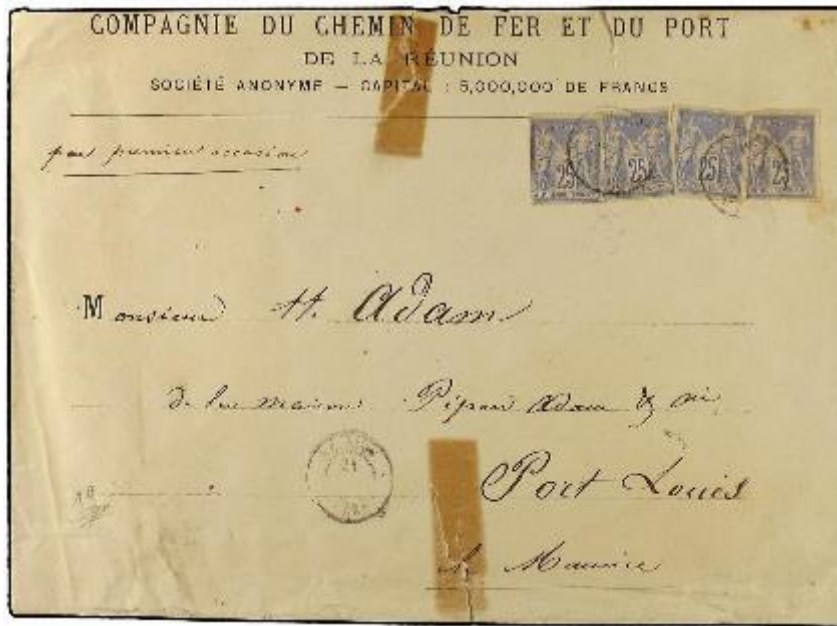 COMPAGNIE DU CHEMIN DE FER ET DU PORT
DE LA RÉUNION
SOCIÉTÉ ANONYME — CAPITAL : 5,000,000 DE FRANCS
par premiere occasion
25 25 25 25
Monsieur H. Adam
de la maison Pipon Adam & Cie
Port Louis
Maurice